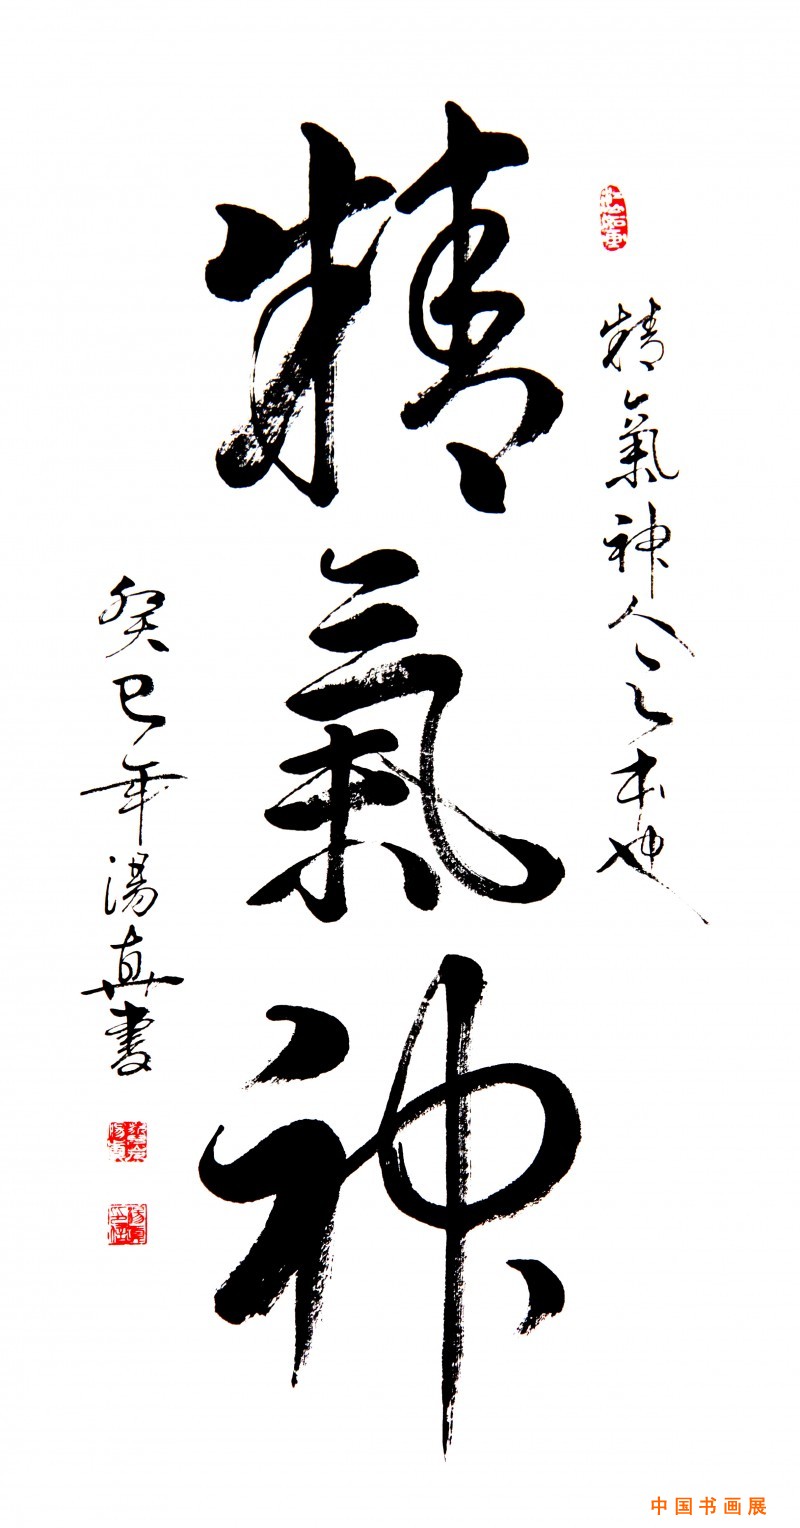 精氣神人之本也
精氣神
癸巳年湯真書
中国书画展